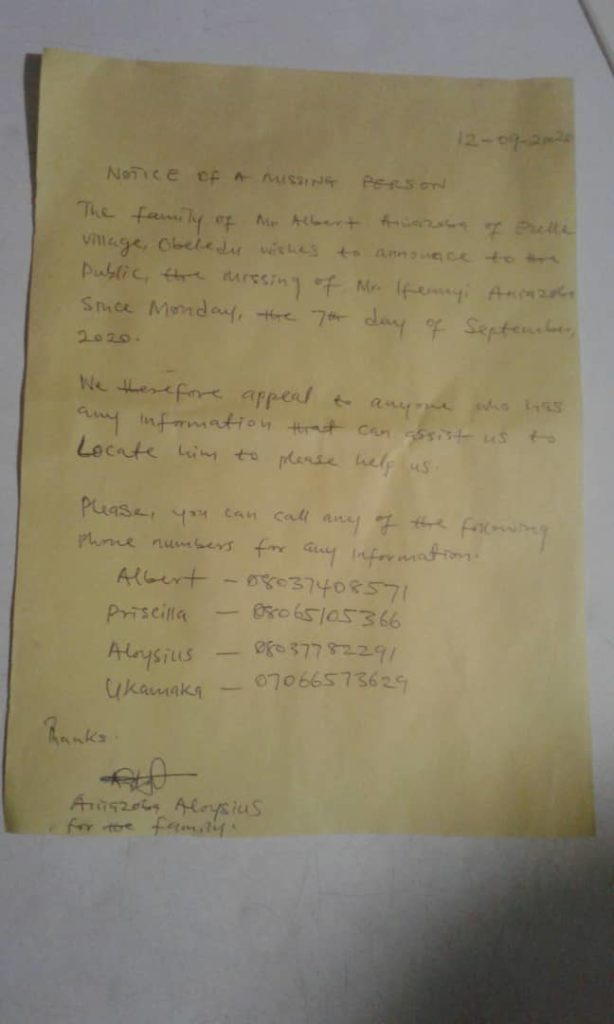 12-09-2020
NOTICE OF A MISSING PERSON
The family of Mr Albert Aniazoba of Ezelle
village, Obeledu wishes to announce to the
public, the missing of Mr. Ifeanyi Aniazoba
Since Monday, the 7th day of September,
2020.
We therefore appeal to anyone who has
any information that can assist us to
Locate him to please help us.
Please, you can call any of the following
phone numbers for any information.
Albert - 08037408571
Priscilla - 08065105366
Aloysius - 08037782291
Ukamaka - 07066573629
Thanks.
Aniazoba Aloysius
for the family.